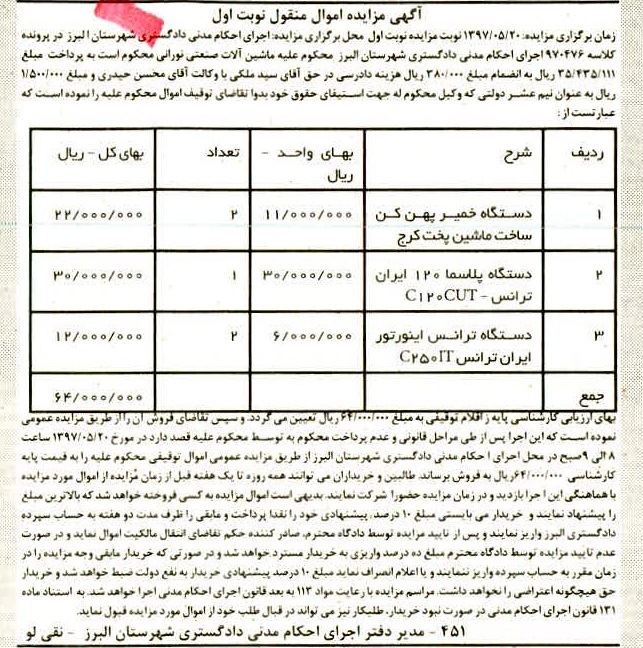 آگهی مزایده اموال منقول نوبت اول
زمان برگزاری مزایده: ۱۳۹۷/۰۵/۲۰ نوبت مزایده نوبت اول محل برگزاری مزایده: اجرای احکام مدنی دادگستری شهرستان البرز در پرونده
کلاسه ۹۷۰۴۷۶ اجرای احکام مدنی دادگستری شهرستان البرز محکوم علیه ماشین آلات صنعتی نورانی محکوم است به پرداخت مبلغ
۳۵/۴۳۵/۱۱۱ ریال به انضمام مبلغ ۳۸۰/۰۰۰ ریال هزینه دادرسی در حق آقای سید ملکی با وکالت آقای محسن حیدری و مبلغ ۱/۵۰۰/۰۰۰
ریال به عنوان نیم عشر دولتی که وکیل محکوم له جهت استیفای حقوق خود بدوا تقاضای توقیف اموال محکوم علیه را نموده است که
عبارتست از:
ردیف شرح بهای واحد - تعداد بهای کل - ریال
ریال
۱ دستگاه خمیر پهن کن ۱۱/۰۰۰/۰۰۰ ۲ ۲۲/۰۰۰/۰۰۰
ساخت ماشین پخت کرج
۲ دستگاه پلاسما ۱۲۰ ایران ۳۰/۰۰۰/۰۰۰ ۱ ۳۰/۰۰۰/۰۰۰
ترانس - C۱۲۰CUT
۳ دستگاه ترانس اینورتور ۶/۰۰۰/۰۰۰ ۲ ۱۲/۰۰۰/۰۰۰
ایران ترانس C۲۵۰IT
جمع ۶۴/۰۰۰/۰۰۰
بهای ارزیابی کارشناسی پایه اقلام توقیفی به مبلغ ۶۴/۰۰۰/۰۰۰ ریال تعیین می گردد. و سپس تقاضای فروش آن را از طریق مزایده عمومی
نموده است که این اجرا پس از طی مراحل قانونی و عدم پرداخت محکوم به توسط محکوم علیه قصد دارد در مورخ ۱۳۹۷/۰۵/۲۰ ساعت
۸ الی ۹ صبح در محل اجرای احکام مدنی دادگستری شهرستان البرز از طریق مزایده عمومی اموال توقیفی محکوم علیه را به قیمت پایه
کارشناسی ۶۴/۰۰۰/۰۰۰ ریال به فروش برساند. طالبین و خریداران می توانند همه روزه تا یک هفته قبل از زمان مزایده از اموال مورد مزایده
با هماهنگی این اجرا بازدید و در زمان مزایده حضورا شرکت نمایند. بدیهی است اموال مزایده به کسی فروخته خواهد شد که بالاترین مبلغ
را پیشنهاد نمایند و خریدار می بایستی مبلغ ۱۰ درصد، پیشنهادی خود را نقدا پرداخت و مابقی را ظرف مدت دو هفته به حساب سپرده
دادگستری البرز واریز نمایند و پس از تایید مزایده توسط دادگاه محترم، صادر کننده حکم تقاضای انتقال مالکیت اموال نماید و در صورت
عدم تایید مزایده توسط دادگاه محترم مبلغ ده درصد واریزی به خریدار مسترد خواهد شد و در صورتی که خریدار مابقی وجه مزایده را در
زمان مقرر به حساب سپرده واریز ننمایند و یا اعلام انصراف نماید مبلغ ۱۰ درصد پیشنهادی خریدار به نفع دولت ضبط خواهد شد و خریدار
حق هیچگونه اعتراضی را نخواهد داشت. مراسم مزایده با رعایت مواد ۱۱۳ به بعد قانون اجرای احکام مدنی اجرا خواهد شد. به استناد ماده
۱۳۱ قانون اجرای احکام مدنی در صورت نبود خریدار، طلبکار نیز می تواند در قبال طلب خود از اموال مورد مزایده قبول نماید.
۴۵۱ - مدیر دفتر اجرای احکام مدنی دادگستری شهرستان البرز - نقی لو